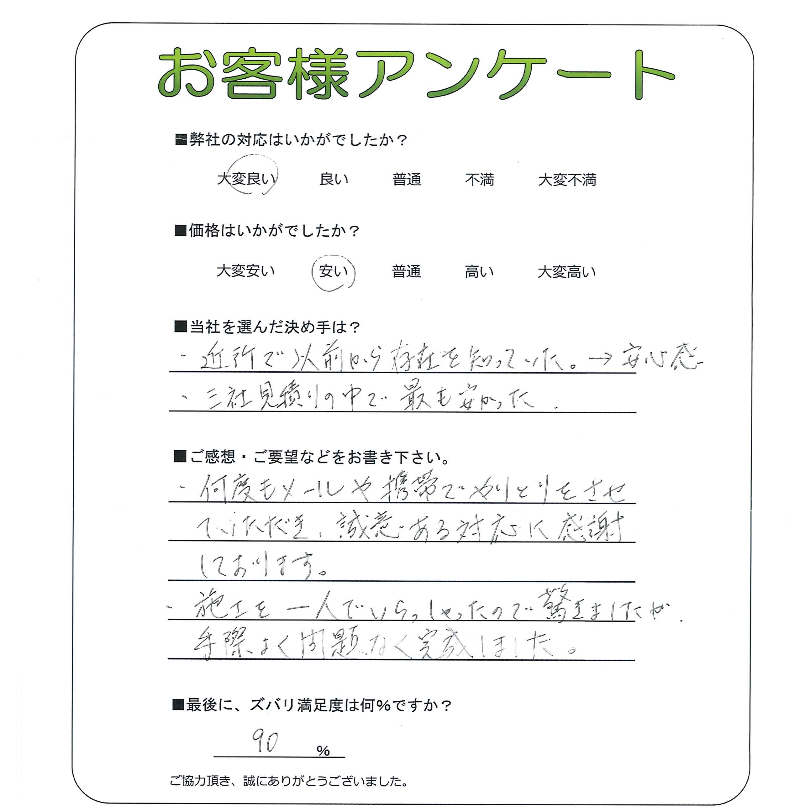 お客様アンケート
■弊社の対応はいかがでしたか？
大変良い 良い 普通 不満 大変不満
■価格はいかがでしたか？
大変安い 安い 普通 高い 大変高い
■当社を選んだ決め手は？
・近所で以前から存在を知っていた。→安心感
・三社見積りの中で最も安かった.
■ご感想・ご要望などをお書き下さい。
・何度もメールや携帯でやりとりをさせ
ていただき、誠意ある対応に感謝
しております。
・施工を一人でいらっしゃったので驚きましたが、
手際よく問題なく完成しました。
■最後に、ズバリ満足度は何%ですか？
90 %
ご協力頂き、誠にありがとうございました。